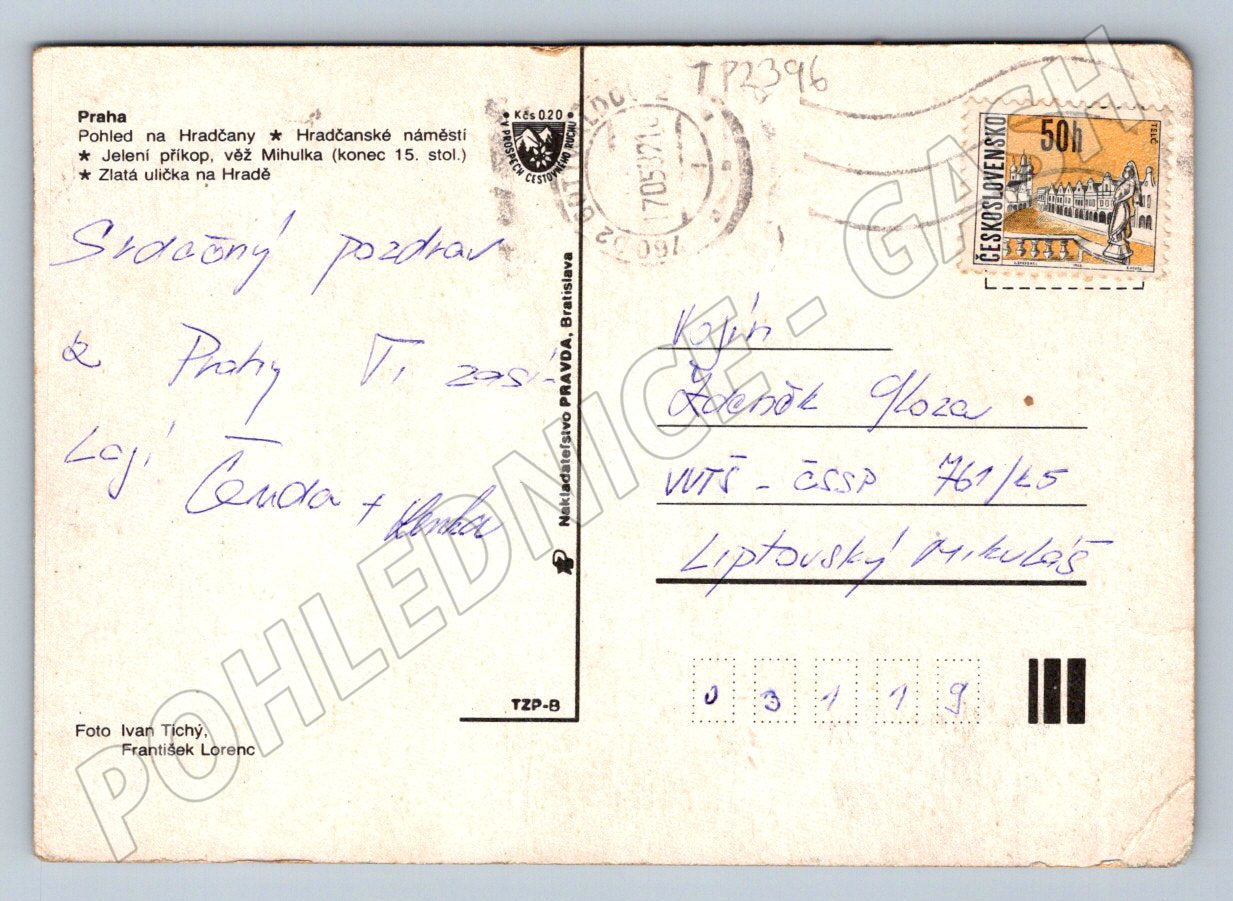 Praha
Pohled na Hradčany ★ Hradčanské náměstí
★ Jelení příkop, věž Mihulka (konec 15. stol.)
★ Zlatá ulička na Hradě
Kčs 0.20
V PROSPECH CESTOVNÉHO RUCHU
TP2396
760 02 GOTTWALDOV 2
17.05.82
50h
ČESKOSLOVENSKO
TELČ
Srdečný pozdrav
z Prahy Ti zasí-
lají Čenda + Lenka
Nakladateľstvo PRAVDA, Bratislava
TZP-B
Zdeněk
VVTŠ - ČSSP 761/k5
Liptovský Mikuláš
03119
Foto Ivan Tichý,
František Lorenc
POHLEDNICE - GASH